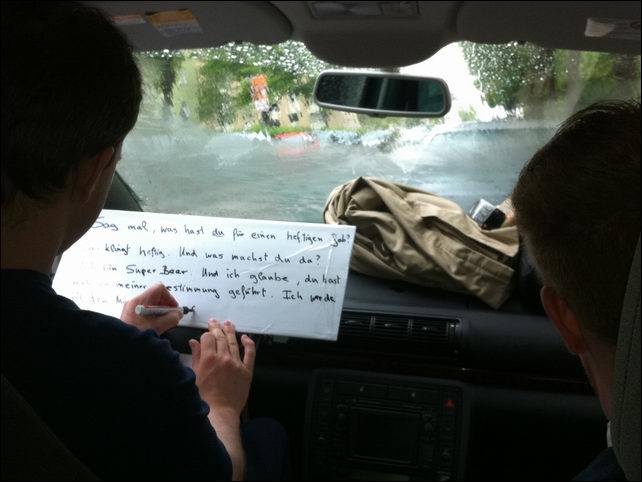 Sag mal, was hast du für einen heftigen Job?
klingt heftig. Und was machst du da?
ein Super Baer. Und ich glaube, du hast
meiner Bestimmung geführt. Ich werde
den